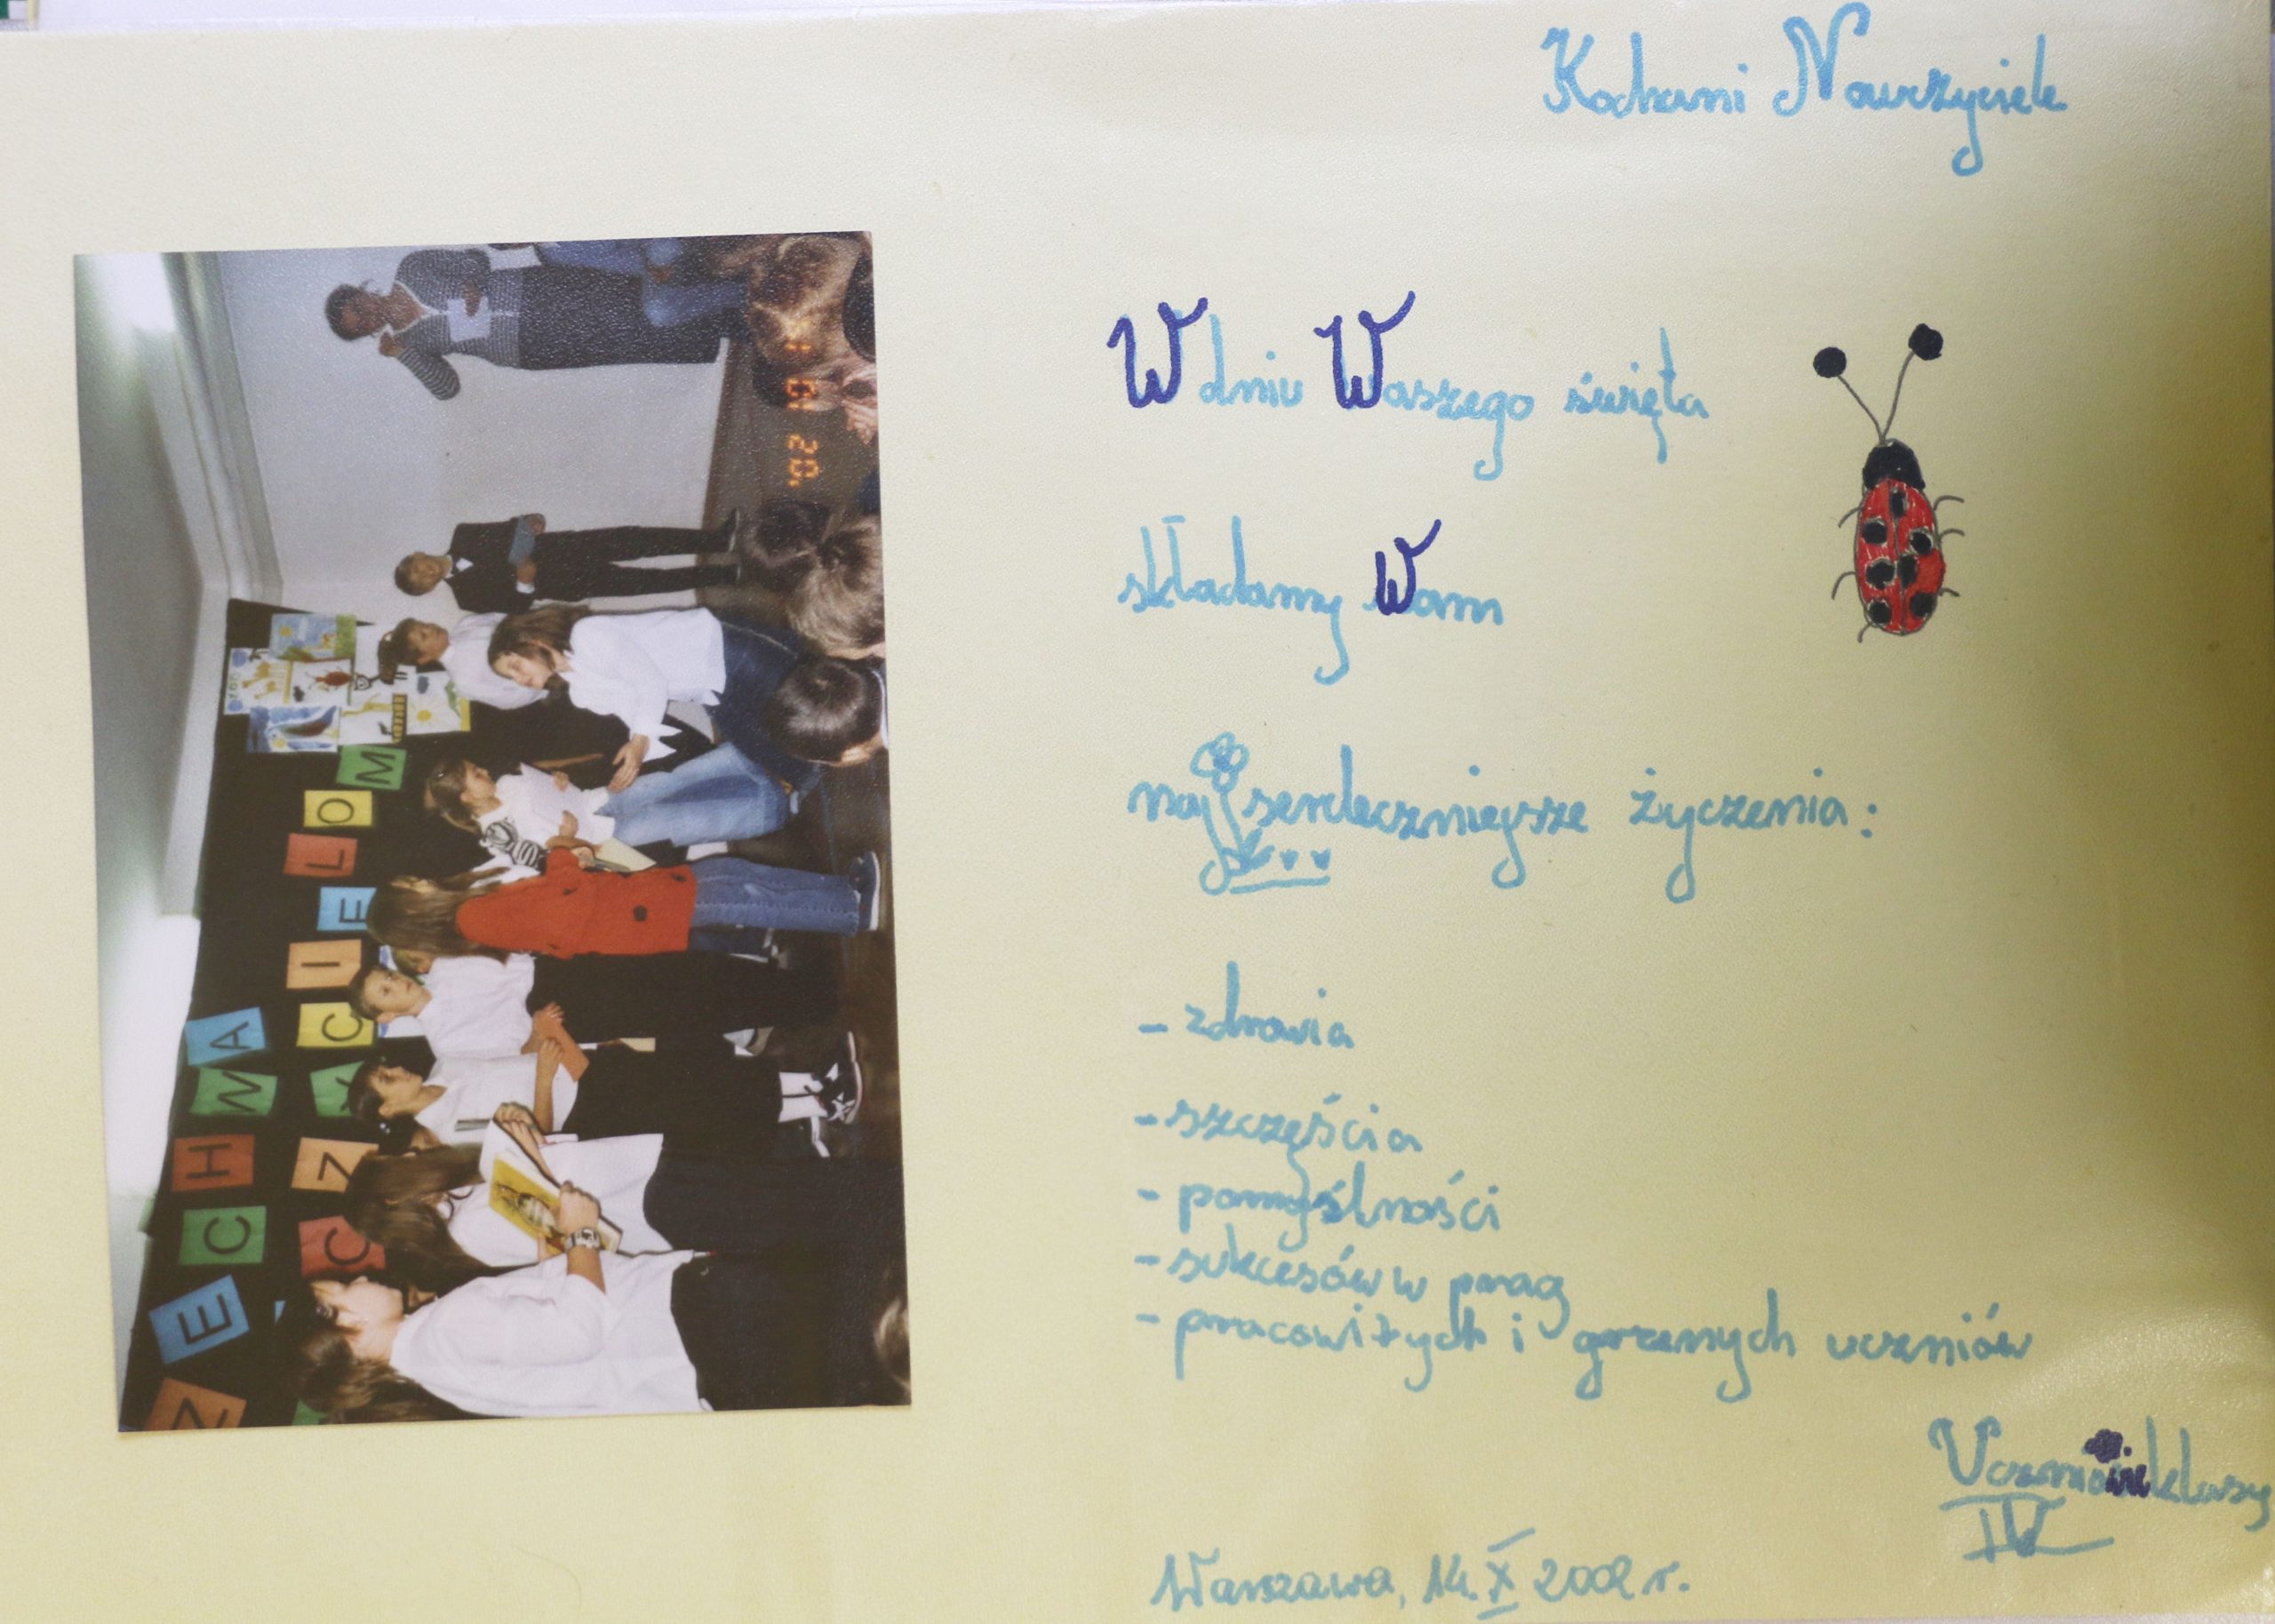 Kochani Nauczyciele
W dniu Waszego święta
składamy Wam
najserdeczniejsze życzenia:
- zdrowia
- szczęścia
- pomyślności
- sukcesów w pracy
- pracowitych i grzecznych uczniów
Uczniowie klasy
IV
Warszawa, 14. X 2002 r.
Z E C H W A
C Z Y C I E L O M